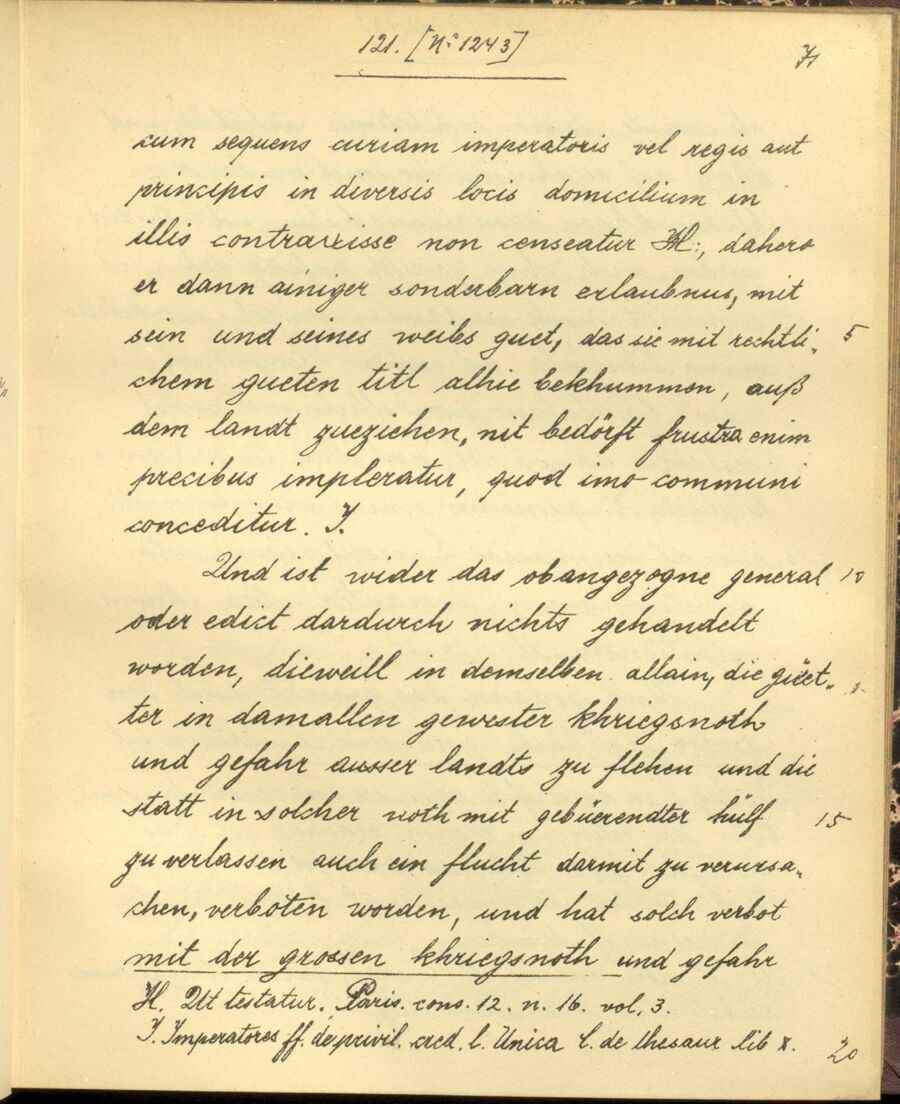 121. [No 1243]
71
cum sequens curiam imperatoris vel regis aut
principis in diversis locis domicilium in
illis contraxisse non censeatur H:, dahero
er dann ainiger sonderbarn erlaubnus, mit
sein und seines weibs guet, das sie mit rechtli„ 5
chem gueten titl alhie bekhummen, auß
dem landt zueziehen, nit bedörft frustra enim
precibus impleratur, quod imo communi
conceditur. J.
Und ist wider das obangezogne general 10
oder edict dardurch nichts gehandelt
worden, dieweill in demselben allain, die güet„
ter in damallen gewester khriegsnoth
und gefahr ausser landts zu flehen und die
statt in solcher noth mit gebüerendter hülf 15
zu verlassen auch ein flucht darmit zu verursa„
chen, verboten worden, und hat solch verbot
mit der grossen khriegsnoth und gefahr
H. Ut testatur. Paris. cons. 12. n. 16. vol. 3.
J. Imperatores ff. de privil. cred. l. Unica C. de thesaur lib x. 20